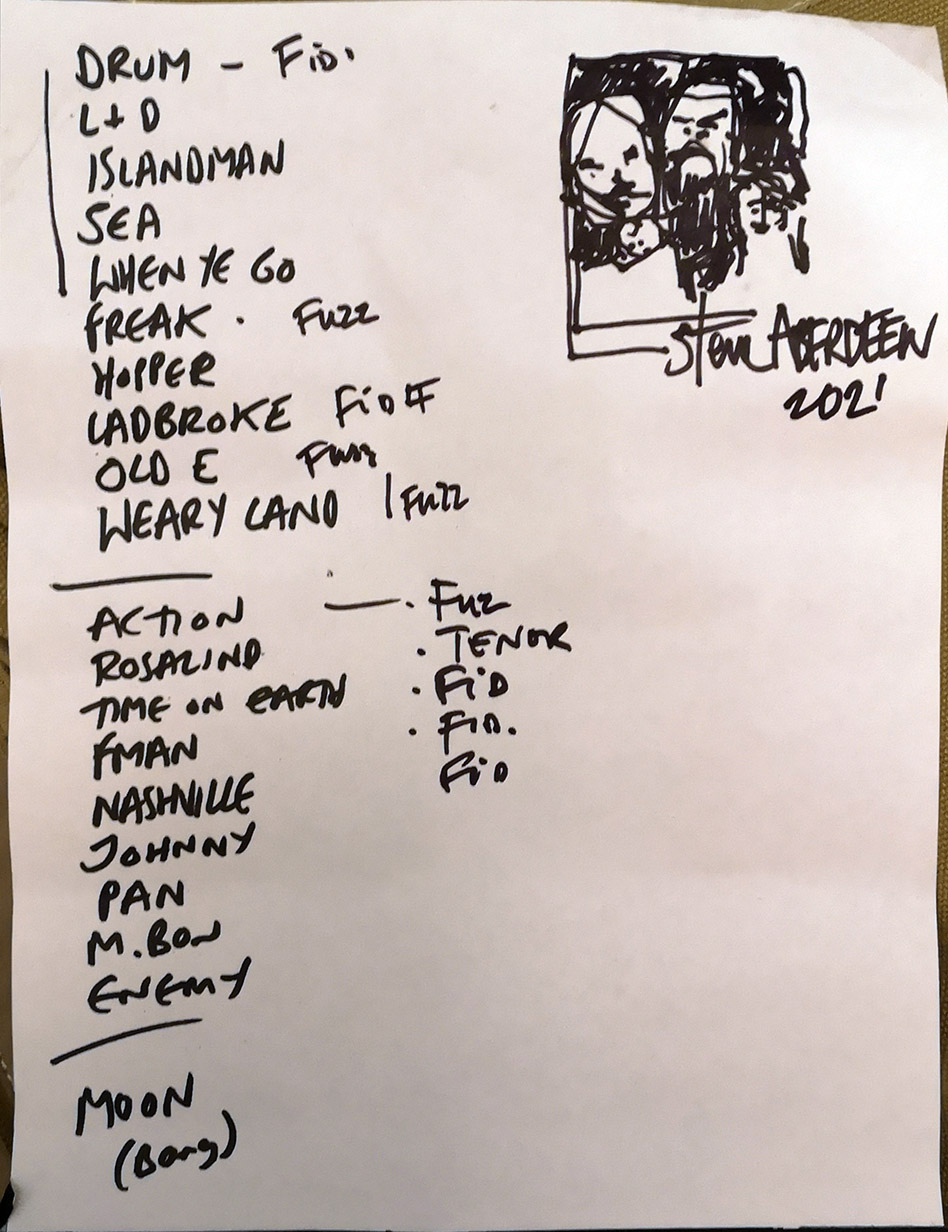 DRUM - FiD.
L+D
ISLANDMAN
SEA
WHEN YE GO
FREAK . FUZZ
HOPPER
LADBROKE FiD
OLD E
WEARY LAND | FUZZ
ACTION — . FUZ
ROSALIND . TENOR
TIME ON EARTH . FiD
FMAN . FiD.
NASHVILLE FiD
JOHNNY
PAN
M. BON
ENEMY
MOON
(Bang)
ABERDEEN
2021